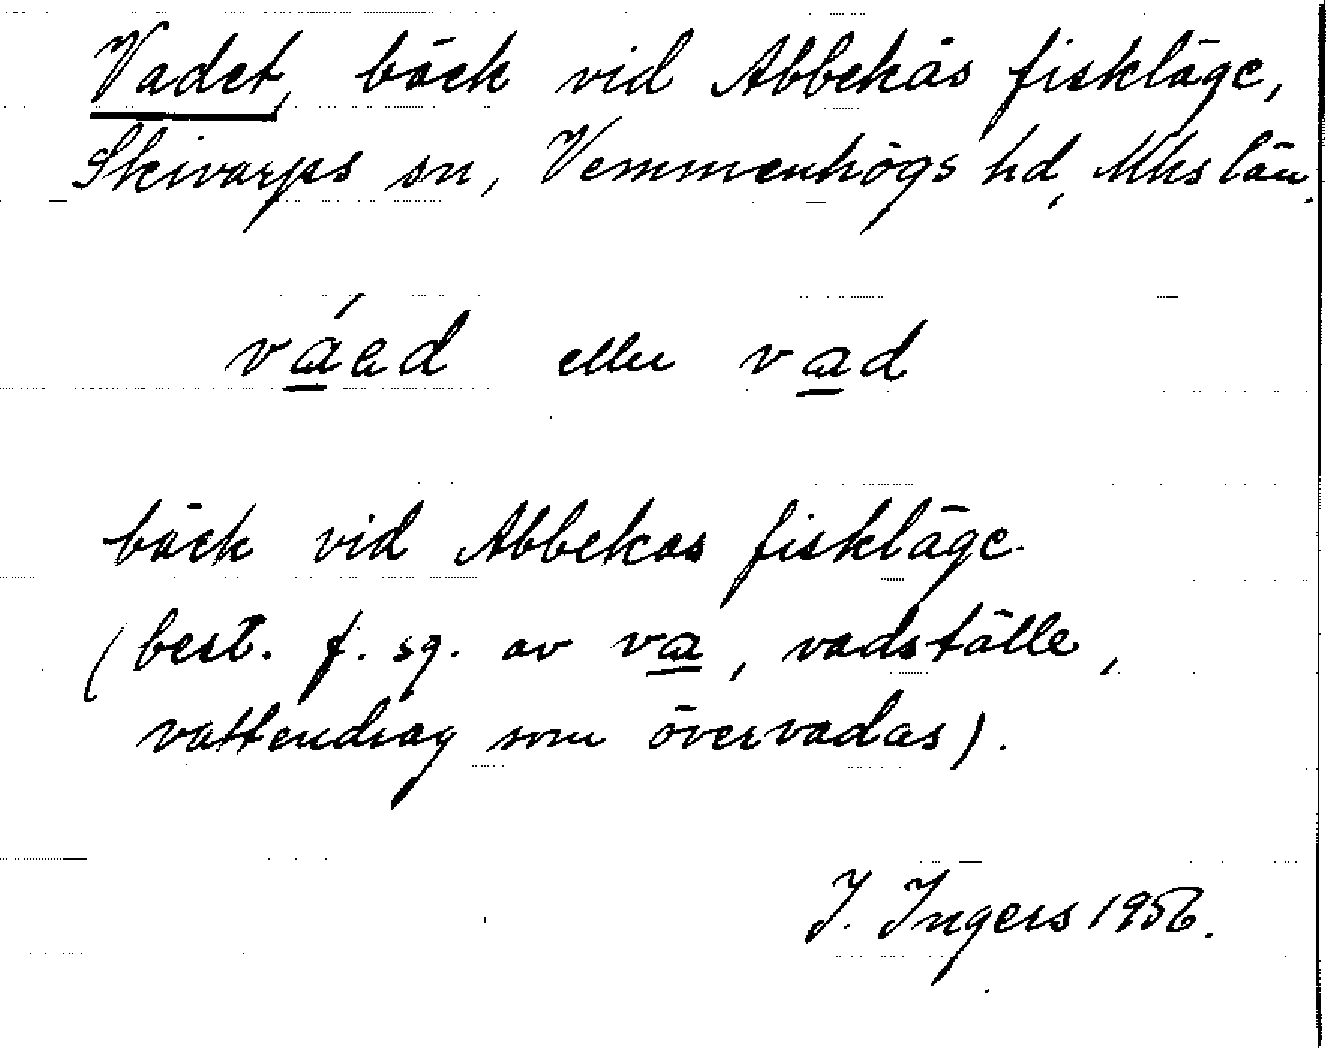 Vadet, bäck vid Abbekås fiskläge,
Skivarps sn, Vemmenhögs hd, Mhs län.
váad eller vad
bäck vid Abbekås fiskläge.
(best. f. sg. av va, vadställe,
vattendrag som övervadas).
I. Ingers 1956.